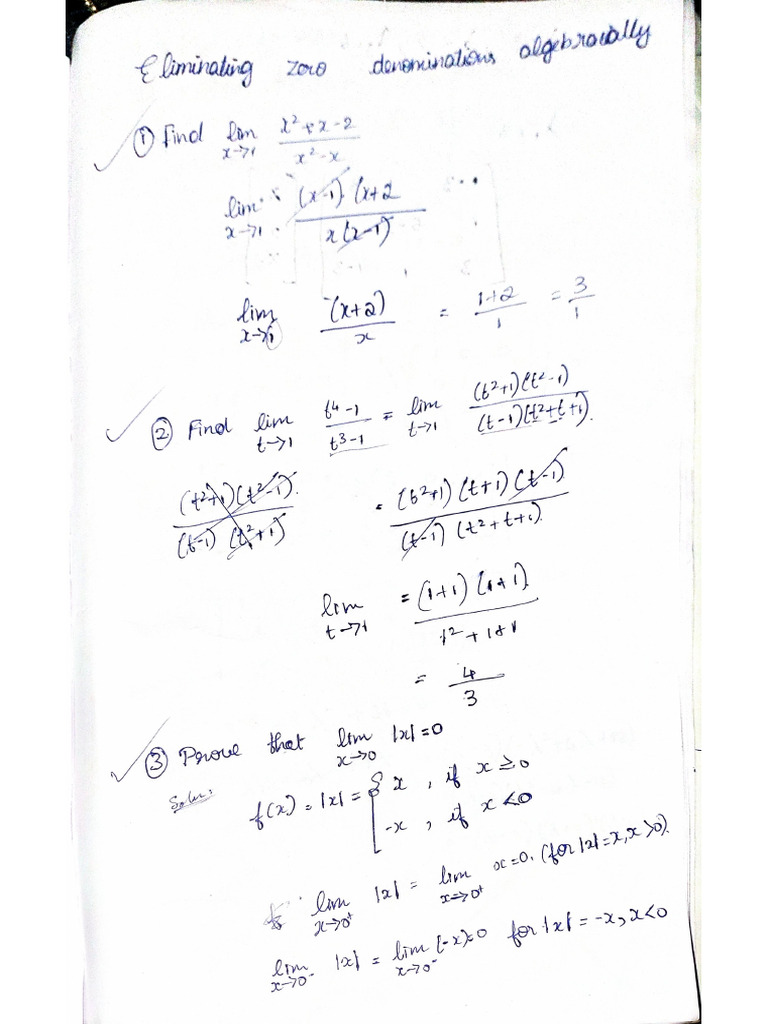 Eliminating zero denominations algebraically
① Find lim x→1 x²+x-2 / x²-x
lim x→1 (x-1) (x+2 / x(x-1)
lim x→1 (x+2) / x = 1+2 / 1 = 3 / 1
② Find lim t→1 t⁴-1 / t³-1 = lim t→1 (t²+1)(t²-1) / (t-1)(t²+t+1).
(t²+1)(t²-1) / (t-1) (t²+1) = (t²+1) (t+1) (t-1) / (t-1) (t²+t+1).
lim t→1 = (1+1) (1+1) / 1²+1+1
= 4 / 3
③ Prove that lim x→0 |x|=0
Soln:
f(x) = |x| = { x , if x ≥ 0
-x , if x < 0
lim x→0⁺ |x| = lim x→0⁺ x=0. (for |x|=x, x>0).
lim x→0⁻ |x| = lim x→0⁻ (-x)=0 for |x| = -x, x<0